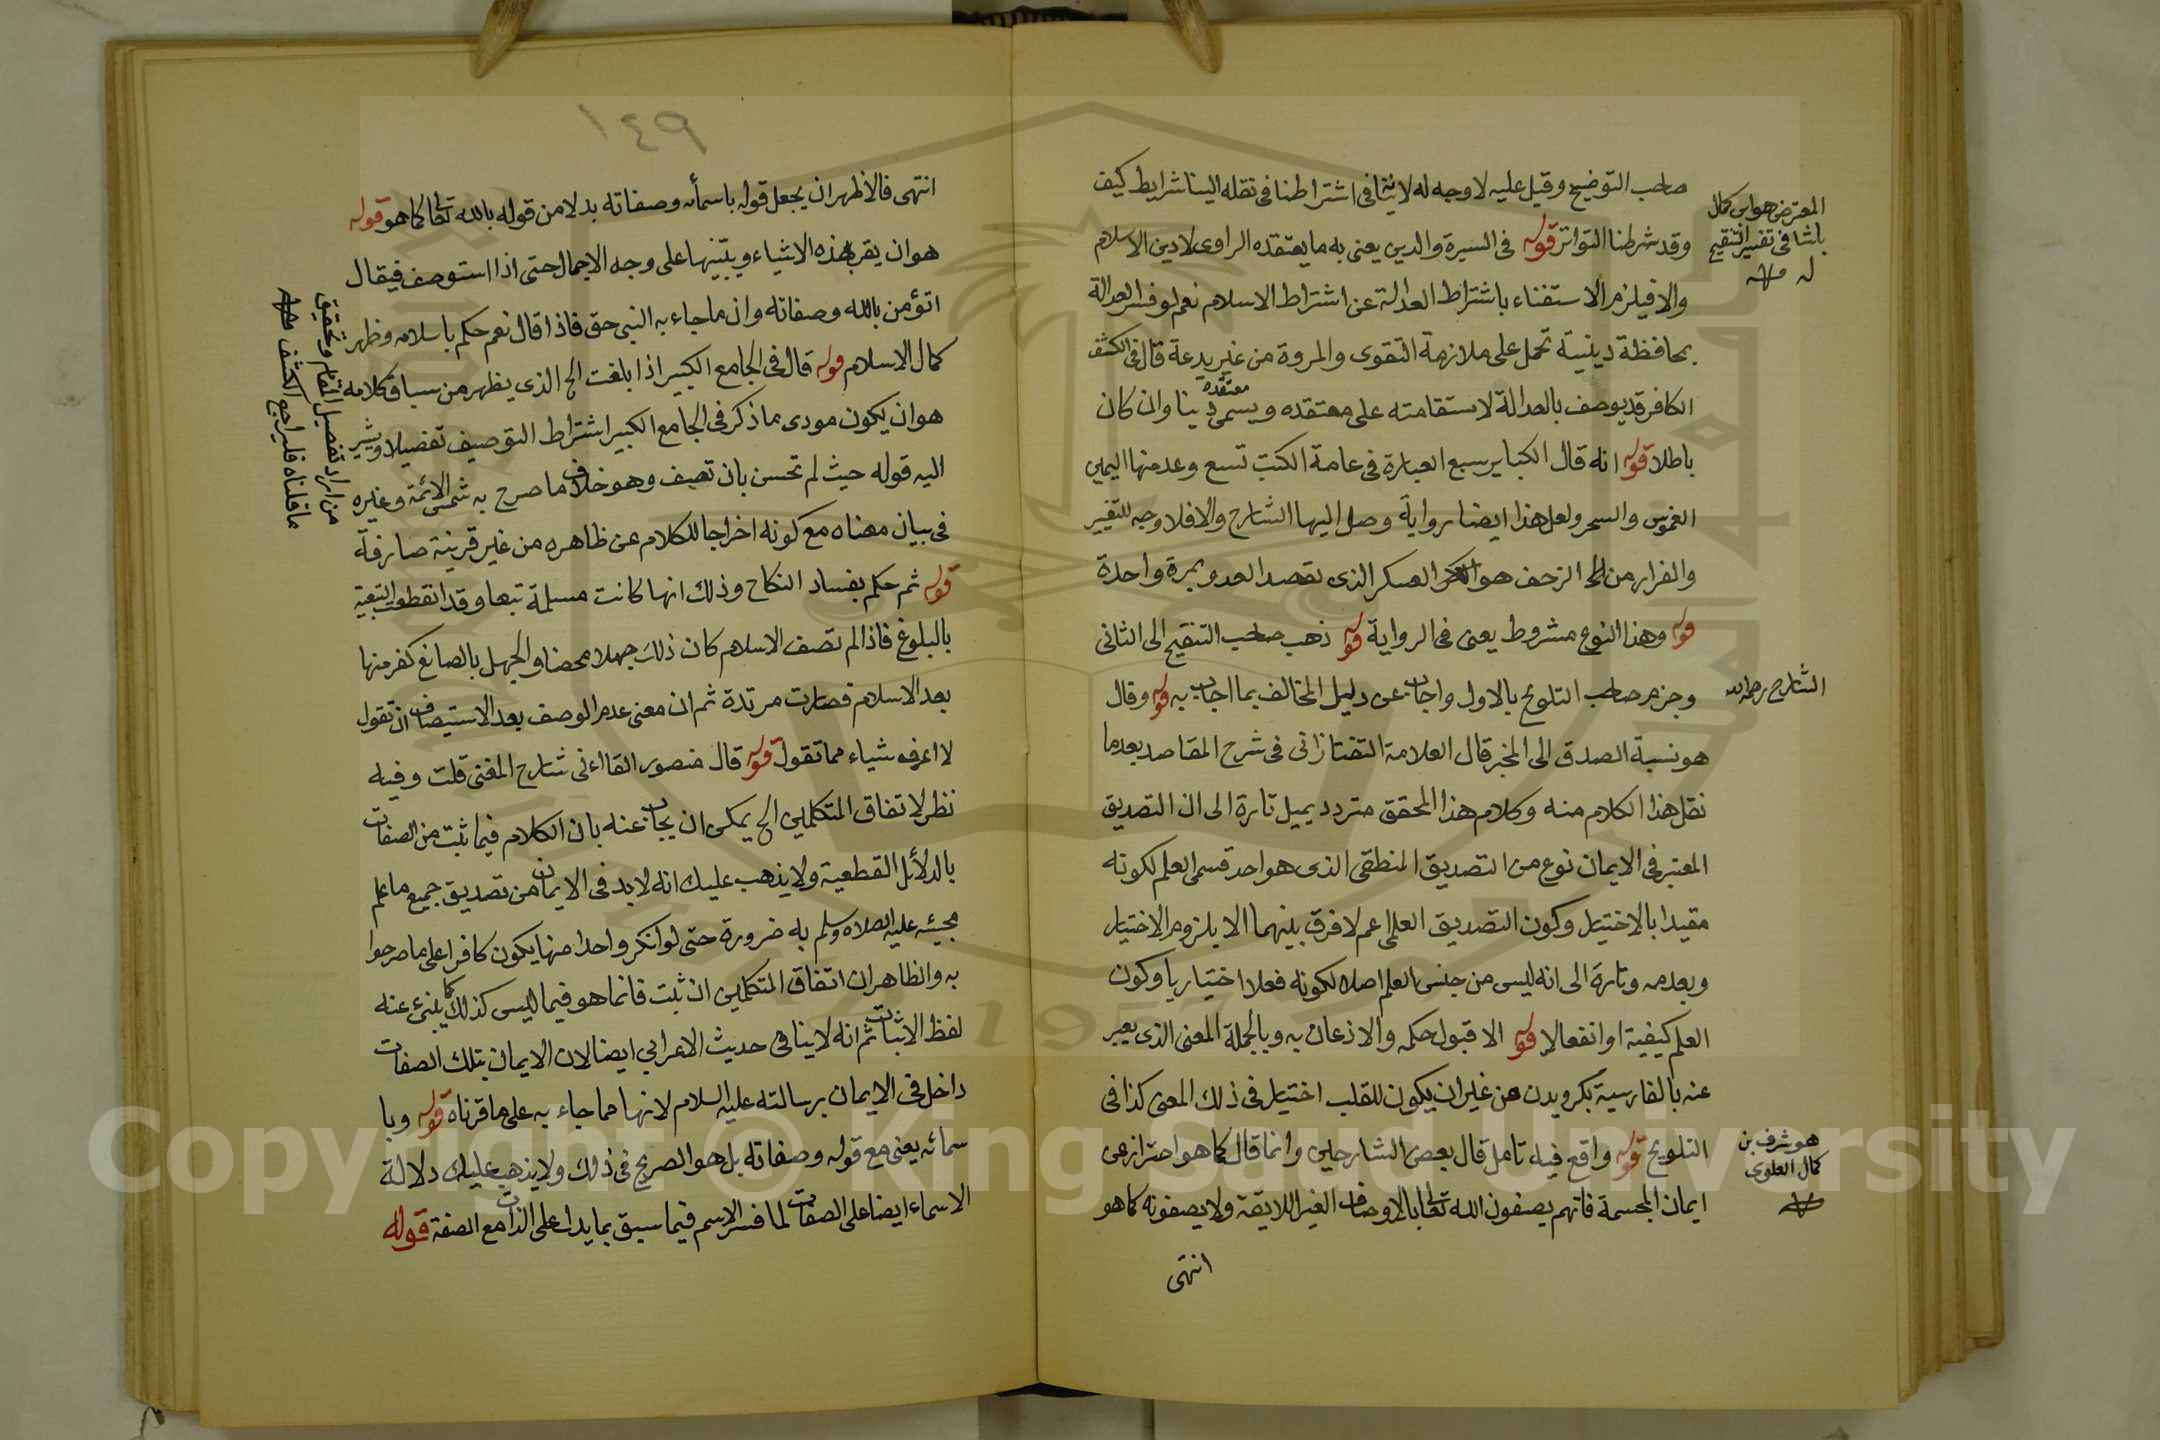 صاحب التوضيح وقيل عليه لا وجه له لا ينافى اشتراطنا فى نقله الينا شرايط كيف
وقد شرطنا التواتر قوله فى السيرة والدين يعنى به ما يعتقده الراوى لا دين الاسلام
والا فيلزم الاستغناء باشتراط العدالة عن اشتراط الاسلام نعم لو فسر العدالة
بمحافظة دينية تحمل على ملازمة التقوى والمروة من غير بدعة قال فى الكشف
الكافر قد يوصف بالعدالة لاستقامته على معتقده ويسمى معتقده دينا وان كان
باطلا قوله انه قال الكباير سبع العبارة فى عامة الكتب تسع وعد منها اليمين
الغموس والسحر ولعل هذا ايضا رواية وصل اليها الشارح والا فلا وجه للتغيير
والفرار من الخ الزحف هو العسكر الذى يقصد العدو بمرة واحدة
قوله وهذا النوع مشروط يعنى فى الرواية قوله ذهب صاحب التنقيح الى الثانى
وجزم صاحب التلويح بالاول واجاب عن دليل المخالف بما اجاب به قوله وقال
هو نسبة الصدق الى المخبر قال العلامة التفتازانى فى شرح المقاصد بعدما
نقل هذا الكلام منه وكلام هذا المحقق متردد يميل تارة الى ان التصديق
المعتبر فى الايمان نوع من التصديق المنطقى الذى هو احد قسمى العلم لكونه
مقيدا بالاختيار وكون التصديق العلمى اعم لا فرق بينهما الا بلزوم الاختيار
وبعدمه وتارة الى انه ليس من جنس العلم اصلا لكونه فعلا اختياريا وكون
العلم كيفية او انفعالا قوله الا قبول حكمه والاذعان به وبالجملة المعنى الذى يعبر
عنه بالفارسية بكرويدن من غير ان يكون للقلب اختيار فى ذلك المعنى كذا فى
التلويح قوله واقع فيه تامل قال بعض الشارحين وانما قال كما هو احترازا عن
ايمان المجسمة فانهم يصفون الله تعالى بالاوصاف الغير اللايقة ولا يصفونه كما هو
انتهى
المعترض هو ابن كمال
باشا فى تغيير التنقيح
له منه
الشارح رحمه الله
هو شرف بن
كمال العلوى
منه
١٤٩
انتهى فالاظهر ان يجعل قوله باسمائه وصفاته بدلا من قوله بالله تعالى كما هو قوله
هو ان يقر بهذه الاشياء ويتبينها على وجه الاجمال حتى اذا استوصف فيقال
اتؤمن بالله وصفاته وان ما جاء به النبى حق فاذا قال نعم حكم باسلامه وظهر
كمال الاسلام قوله قال فى الجامع الكبير اذا بلغت الخ الذى يظهر من سباق كلامه
هو ان يكون مودى ما ذكر فى الجامع الكبير اشتراط التوصيف تفصيلا ويشير
اليه قوله حيث لم تحسن بان تصف وهو خلاف ما صرح به شمس الائمة وغيره
فى بيان معناه مع كونه اخراجا للكلام عن ظاهره من غير قرينة صارفة
قوله ثم حكم بفساد النكاح وذلك انها كانت مسلمة تبعا وقد انقطعت التبعية
بالبلوغ فاذا لم تصف الاسلام كان ذلك جهلا محضا والجهل بالصانع كفر منها
بعد الاسلام فصارت مرتدة ثم ان معنى عدم الوصف بعد الاستيصاف ان تقول
لا اعرف شياء مما تقول قوله قال منصور القاانى شارح المغنى قلت وفيه
نظر لاتفاق المتكلمين الخ يمكن ان يجاب عنه بان الكلام فيما ثبت من الصفات
بالدلائل القطعية ولا يذهب عليك انه لابد فى الايمان من تصديق جميع ما علم
مجيئه عليه الصلاه وسلم به ضرورة حتى لو انكر واحدا منها يكون كافرا على ما صرحوا
به والظاهر ان اتفاق المتكلمين ان ثبت فانما هو فيما ليس كذلك كما ينبئ عنه
لفظ الاثبات ثم انه لا ينافى حديث الاعرابى ايضا لان الايمان بتلك الصفات
داخل فى الايمان برسالته عليه السلام لانها مما جاء به على ما قرناه قوله وبا
سمائه يعنى مع قوله وصفاته بل هو الصريح فى ذلك ولا يذهب عليك دلالة
الاسماء ايضا على الصفات لما فسر الاسم فيما سبق بما يدل على الذات مع الصفة قوله
من اراد تفصيل المقام وتحقيق
ما قلناه فليراجع الكشف منه
Copyright © King Saud University
1957